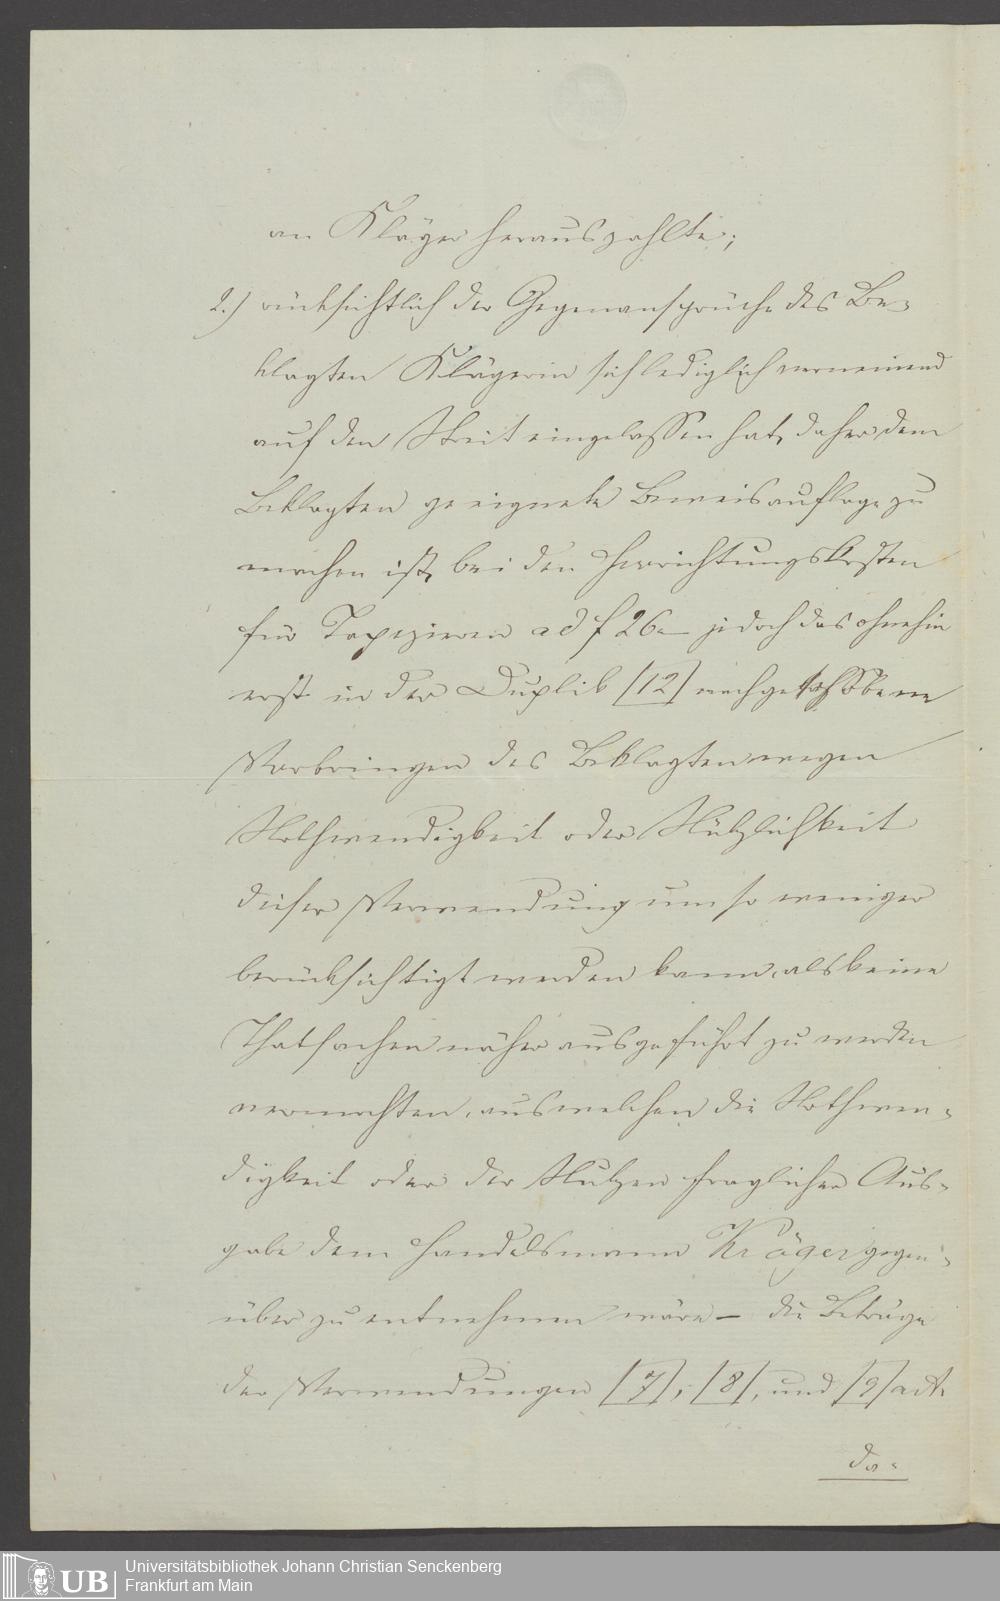 an Kläger herauszahlte;
2.) rücksichtlich der Gegenansprüche des Be-
klagten Klägerin sich lediglich verneinend
auf den Streit eingelassen hat, daher dem
Beklagten geeignete Beweisauflage zu
machen ist, bei den Herrichtungskosten
für Tapezieren ad f 26 – jedoch das ohnehin
erst in der Duplik [12] nachgeschobene
Vorbringen des Beklagten wegen
Nothwendigkeit oder Nützlichkeit
dieser Verwendung um so weniger
berücksichtigt werden kann, als keine
Thatsachen näher ausgeführt zu werden
vermochten, aus welchen die Nothwen-
digkeit oder der Nutzen fraglicher Aus-
gabe dem Handelsmann Kröger gegen-
über zu entnehmen wäre – die Beträge
der Verwendungen [7], [8], und [9] act.
da-
Universitätsbibliothek Johann Christian Senckenberg
Frankfurt am Main
UB